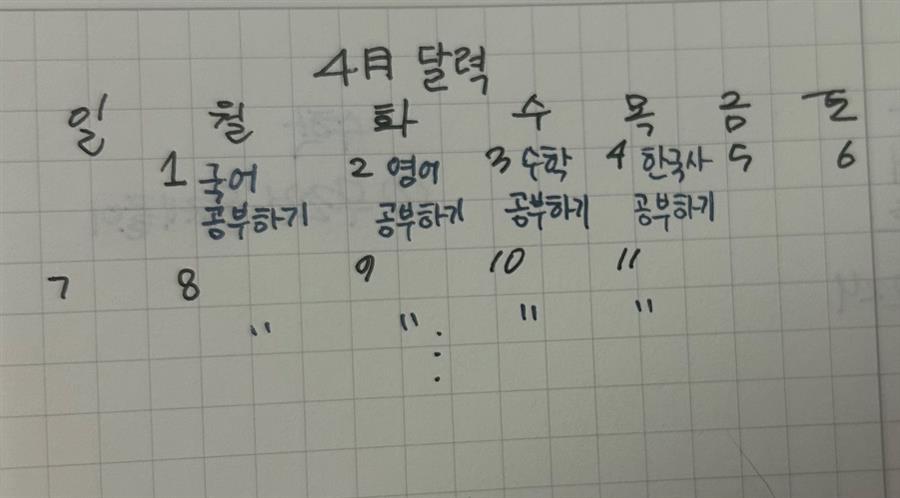 4月 달력
일 월 화 수 목 금 토
1 국어 2 영어 3 수학 4 한국사 5 6
공부하기 공부하기 공부하기 공부하기
7 8 9 10 11
" " " "
⋮